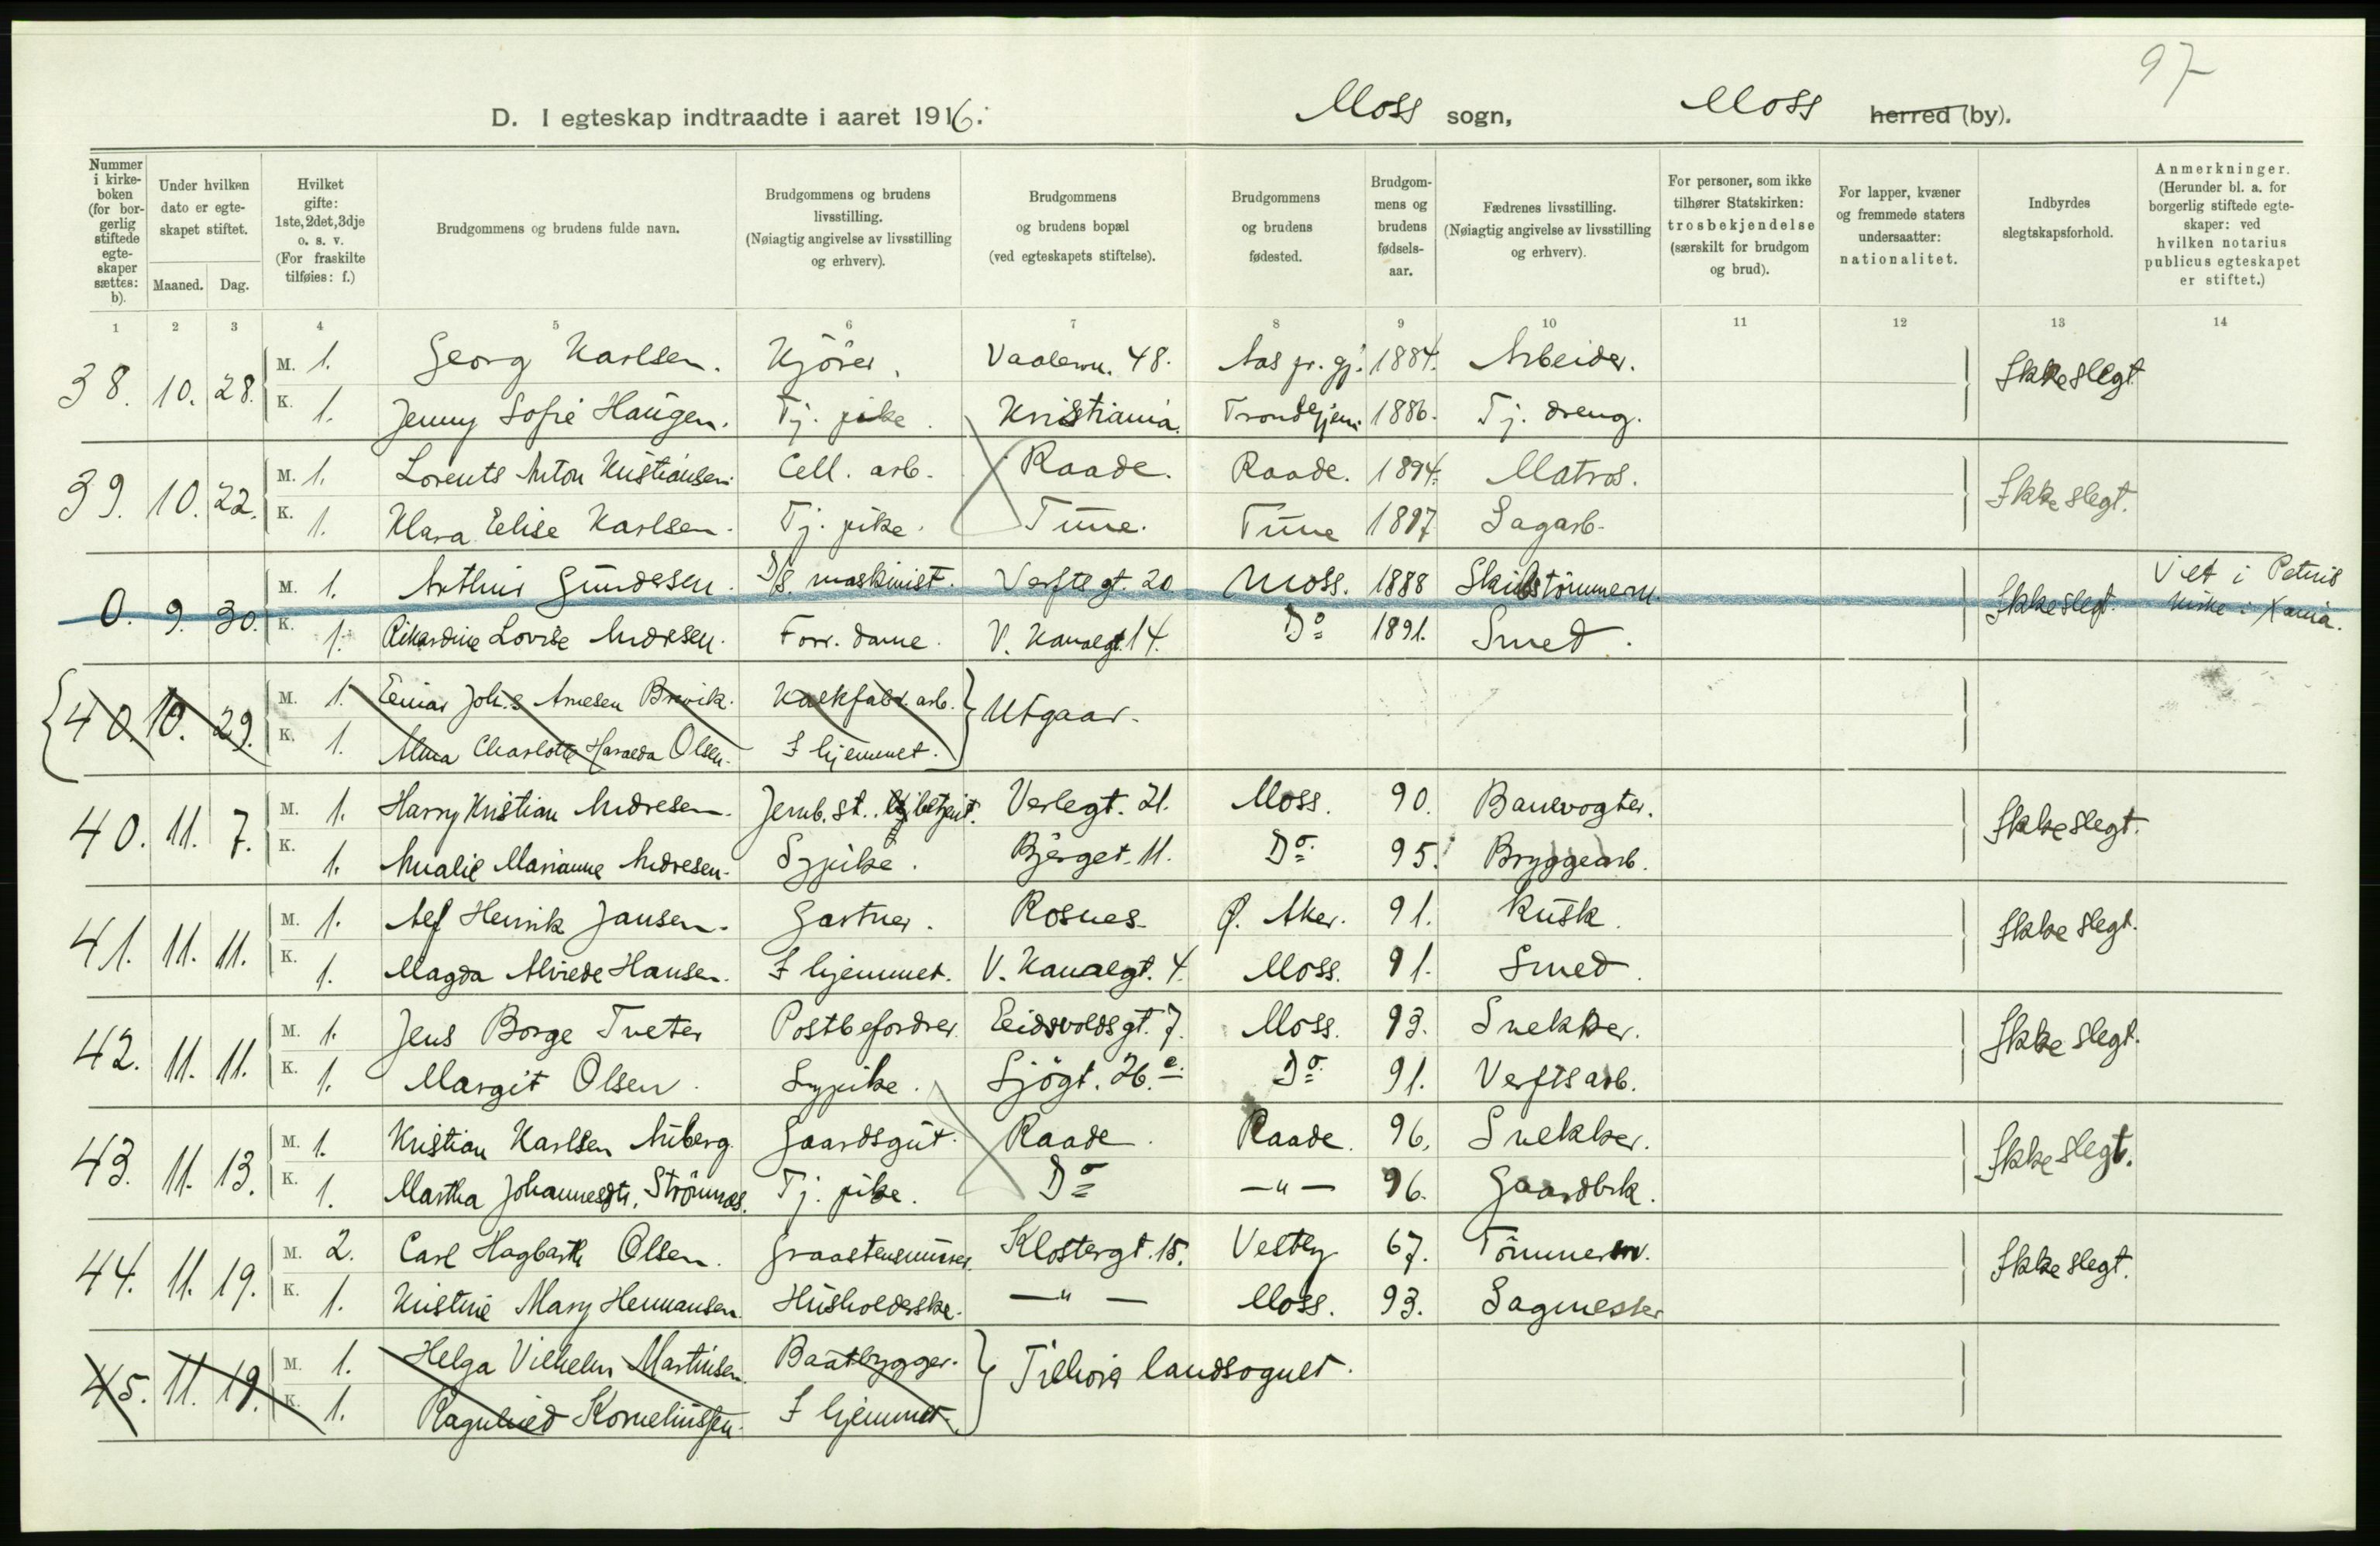 97
D. I egteskap indtraadte i aaret 1916. Moss sogn, Moss herred (by).
Nummer i kirkeboken (for borgerlig stiftede egteskaper sættes: b).
Under hvilken dato er egteskapet stiftet.
Maaned. Dag.
Hvilket gifte: 1ste, 2det, 3dje o. s. v. (For fraskilte tilføies: f.)
Brudgommens og brudens fulde navn.
Brudgommens og brudens livsstilling. (Nøiagtig angivelse av livsstilling og erhverv).
Brudgommens og brudens bopæl (ved egteskapets stiftelse).
Brudgommens og brudens fødested.
Brudgommens og brudens fødselsaar.
Fædrenes livsstilling. (Nøiagtig angivelse av livsstilling og erhverv).
For personer, som ikke tilhører Statskirken: trosbekjendelse (særskilt for brudgom og brud).
For lapper, kvæner og fremmede staters undersaatter: nationalitet.
Indbyrdes slegtskapsforhold.
Anmerkninger. (Herunder bl. a. for borgerlig stiftede egteskaper: ved hvilken notarius publicus egteskapet er stiftet.)
1 2 3 4 5 6 7 8 9 10 11 12 13 14
38. 10. 28. M. 1. Georg Karlsen. Kjörer. Vaalerv. 48. Aas pr. gj. 1884. Arbeider. Ikke slegt
K. 1. Jenny Sofie Haugen. Tj. pike. Kristiania. Trondhjem. 1886. Tj. dreng.
39. 10. 22. M. 1. Lorents Anton Kristiansen. Cell. arb. Raade. Raade. 1894. Matros. Ikke slegt.
K. 1. Klara Elise Karlsen. Tj. pike. Tune. Tune 1897 Sagarb.
0. 9. 30. M. 1. Arthur Gundesen. D/S. maskinist. Verftsgt. 20 Moss. 1888 Skibstömmerm. Ikke slegt. Viet i Petrus kirke i Xania.
K. 1. Rikardine Lovise Andresen. Forr. dame. V. Kanalgt. 14. Do 1891. Smed.
40. 10. 29. M. 1. Einar Joh.s Arnesen Brevik. Kalkfabr. arb. Utgaar.
K. 1. Alma Charlotte Haralda Olsen. I hjemmet.
40. 11. 7. M. 1. Harry Kristian Andresen. Jernb. st. betjent. Verlegt. 21. Moss. 90. Banevogter. Ikke slegt.
K. 1. Amalie Marianne Andresen. Sypike. Bjerget. 11. Do 95. Bryggearb.
41. 11. 11. M. 1. Alf Henrik Jansen. Gartner. Rosnes. Ø. Aker. 91. Kusk. Ikke slegt.
K. 1. Magda Alvilde Hansen. I hjemmet. V. Kanalgt. 4. Moss. 91. Smed.
42. 11. 11. M. 1. Jens Borge Tveter Postbefordrer. Eidsvoldsgt. 7. Moss. 93. Snekker. Ikke slegt.
K. 1. Margit Olsen. Sypike. Sjögt. 26.c Do 91. Verftsarb.
43. 11. 13. M. 1. Kristian Karlsen Auberg. Gaardsgut. Raade. Raade. 96. Snekker. Ikke slegt.
K. 1. Martha Johannesdtr. Strömnes. Tj. pike. Do —"— 96. Gaardbrk.
44. 11. 19. M. 2. Carl Hagbarth Olsen. Graastensmurer. Klostergt. 15. Vestby 67. Tömmerm. Ikke slegt.
K. 1. Kristine Mary Hermansen. Husholderske. —"— Moss. 93. Sagmester
45. 11. 19. M. 1. Helga Vilhelm Martinsen. Baatbygger. Tilhörer landsognet.
K. 1. Ragnhild Kornelinssen. I hjemmet.